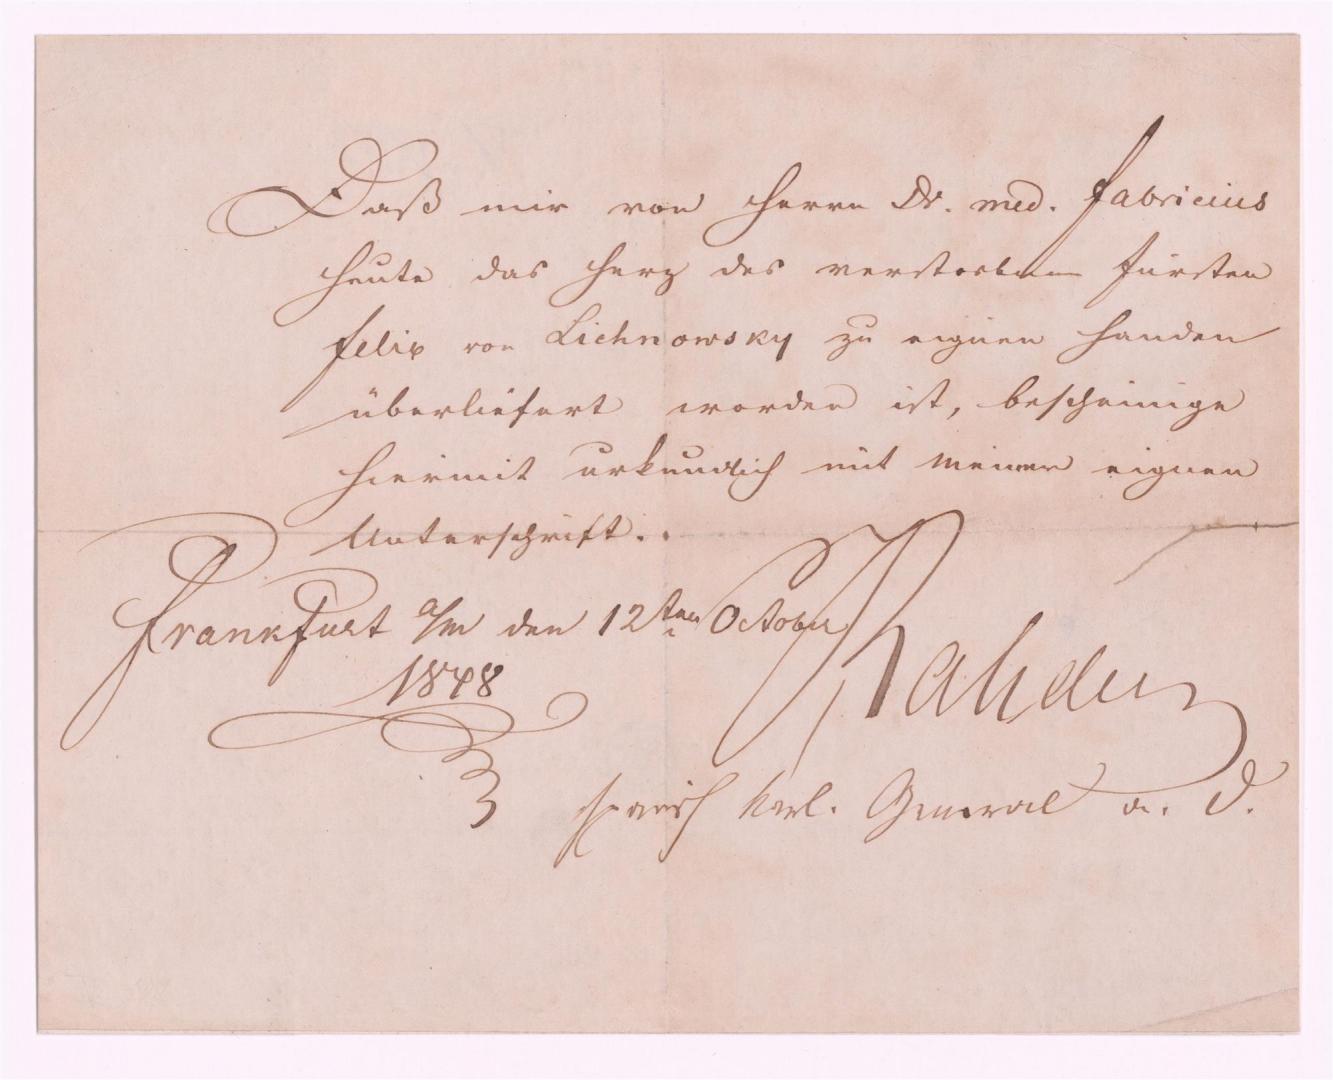 Daß mir von Herrn Dr. med. Fabricius
heute das Herz des verstorbenen Fürsten
Felix von Lichnowsky zu eignen Handen
überliefert worden ist, bescheinige
hiermit urkundlich mit meiner eignen
Unterschrift.
Frankfurt a/m den 12ten October
1848
Rahden
span isch karl. General a. D.